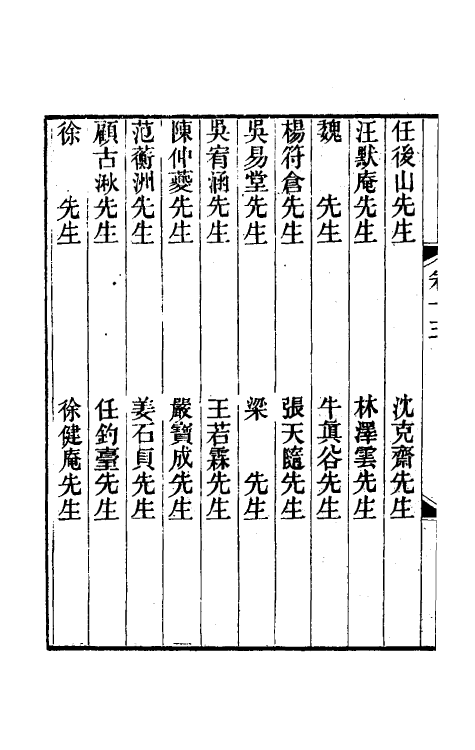 任後山先生
沈克齋先生
汪默庵先生
林澤雲先生
魏　先生
牛真谷先生
楊符倉先生
張天隨先生
吳易堂先生
梁　先生
吳宥涵先生
王若霖先生
陳仲夔先生
嚴寶成先生
范蘅洲先生
姜石貞先生
顧古湫先生
任鈞臺先生
徐　先生
徐健庵先生